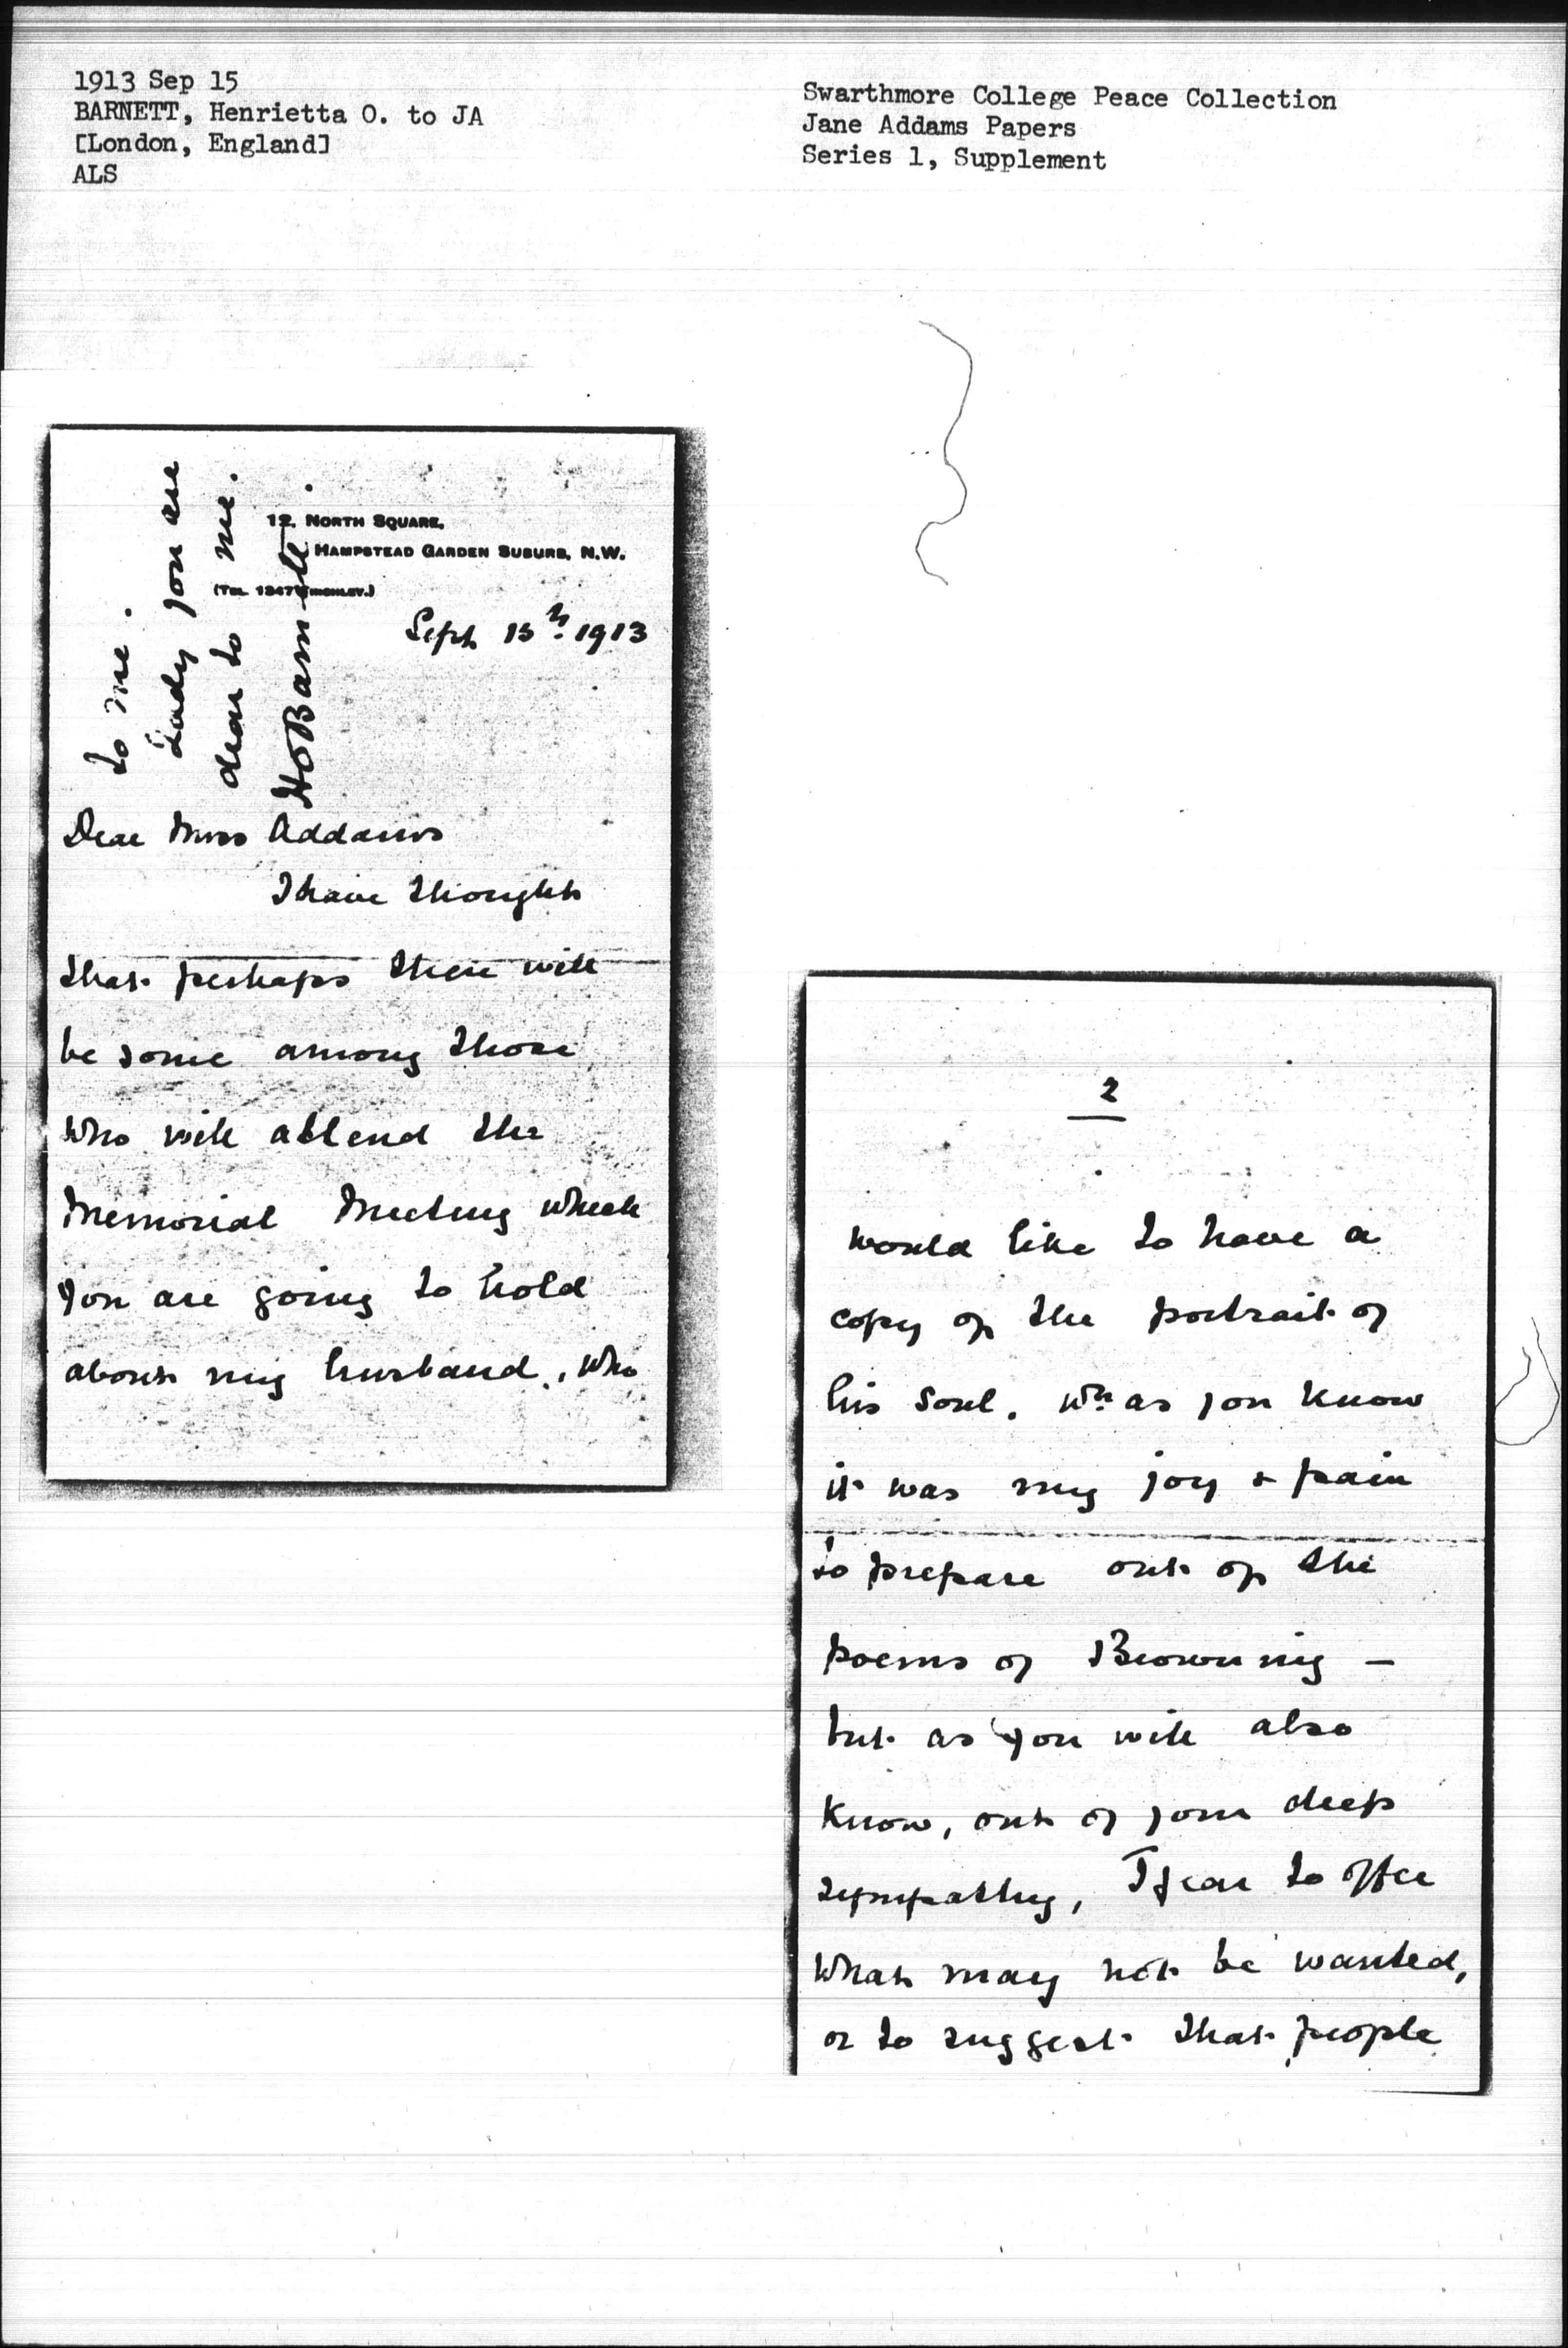 1913 Sep 15
BARNETT, Henrietta O. to JA
[London, England]
ALS
Swarthmore College Peace Collection
Jane Addams Papers
Series 1, Supplement
12, NORTH SQUARE,
HAMPSTEAD GARDEN SUBURB, N.W.
(TEL. 1347 FINCHLEY.)
Sept 15th 1913
Dear Miss Addams
I have thought
that perhaps there will
be some among those
who will attend the
Memorial Meeting which
you are going to hold
about my husband, who
to me.
Lady you are
dear to me.
HOBarnett.
2
would like to have a
copy of the portrait of
his soul, wh. as you know
it was my joy & pain
to prepare out of the
poems of Browning –
but as you will also
know, out of your deep
sympathy, I fear to offer
what may not be wanted,
or to suggest that people